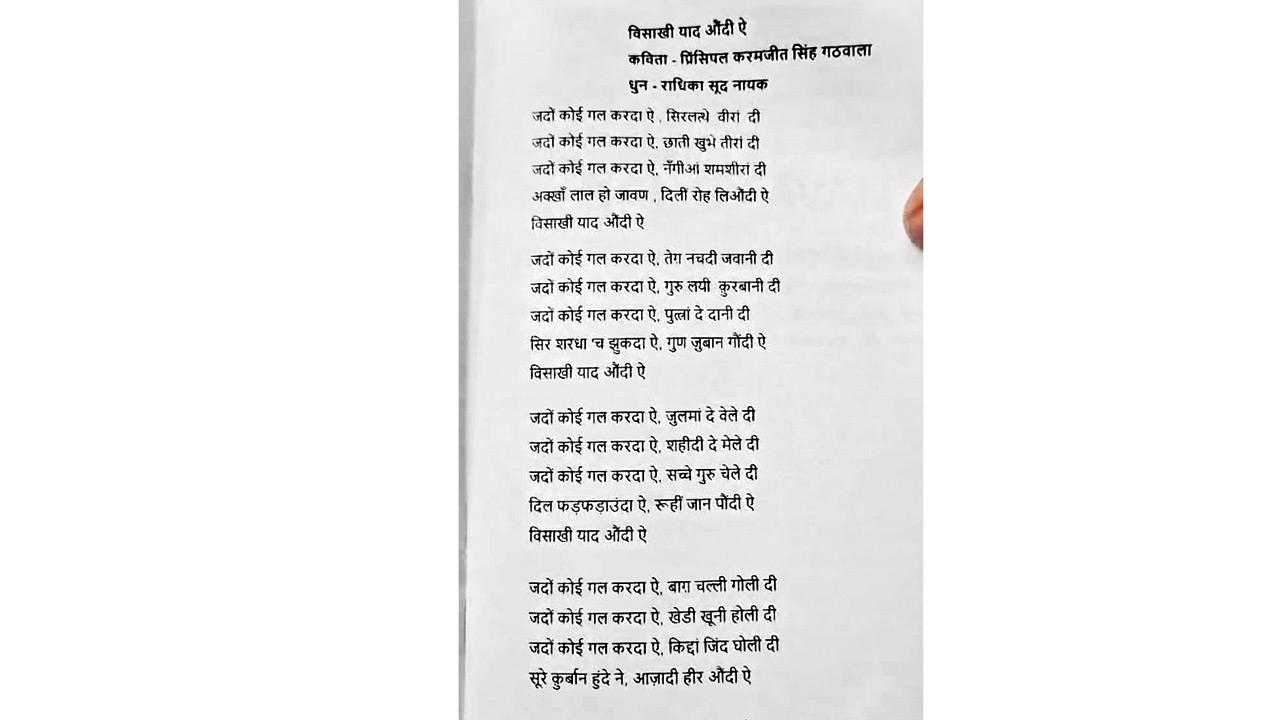 विसाखी याद औंदी ऐ
कविता - प्रिंसिपल करमजीत सिंह गठवाला
धुन - राधिका सूद नायक
जदों कोई गल करदा ऐ , सिरलत्थे वीरां दी
जदों कोई गल करदा ऐ, छाती खुभे तीरां दी
जदों कोई गल करदा ऐ, नँगीआं शमशीरां दी
अक्खाँ लाल हो जावण , दिलीं रोह लिऔंदी ऐ
विसाखी याद औंदी ऐ
जदों कोई गल करदा ऐ, तेग़ नचदी जवानी दी
जदों कोई गल करदा ऐ, गुरु लयी क़ुरबानी दी
जदों कोई गल करदा ऐ, पुत्त्रां दे दानी दी
सिर शरधा 'च झुकदा ऐ, गुण ज़ुबान गौंदी ऐ
विसाखी याद औंदी ऐ
जदों कोई गल करदा ऐ, ज़ुलमां दे वेले दी
जदों कोई गल करदा ऐ, शहीदी दे मेले दी
जदों कोई गल करदा ऐ, सच्चे गुरु चेले दी
दिल फड़फड़ाउंदा ऐ, रूहीं जान पौंदी ऐ
विसाखी याद औंदी ऐ
जदों कोई गल करदा ऐ, बाग़ चल्ली गोली दी
जदों कोई गल करदा ऐ, खेडी खूनी होली दी
जदों कोई गल करदा ऐ, किद्दां जिंद घोली दी
सूरे क़ुर्बान हुंदे ने, आज़ादी हीर औंदी ऐ